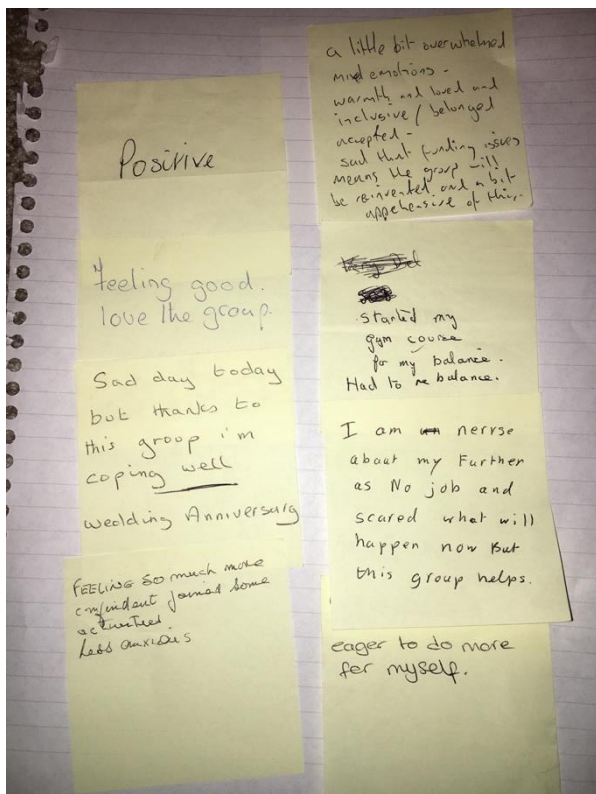 Positive
Feeling good.
love the group.
Sad day today
but thanks to
this group i'm
coping well
wedding Anniversary
FEELING SO much more
confident joined some
activities.
Less anxious
a little bit overwhelmed
mixed emotions -
warmth and loved and
inclusive / belonged
accepted -
sad that funding issues
means the group will
be reinvented and a bit
appehensive of this.
started my
gym course
for my balance.
Had to re balance.
I am nervse
about my Further
as No job and
scared what will
happen now But
this group helps.
eager to do more
for myself.